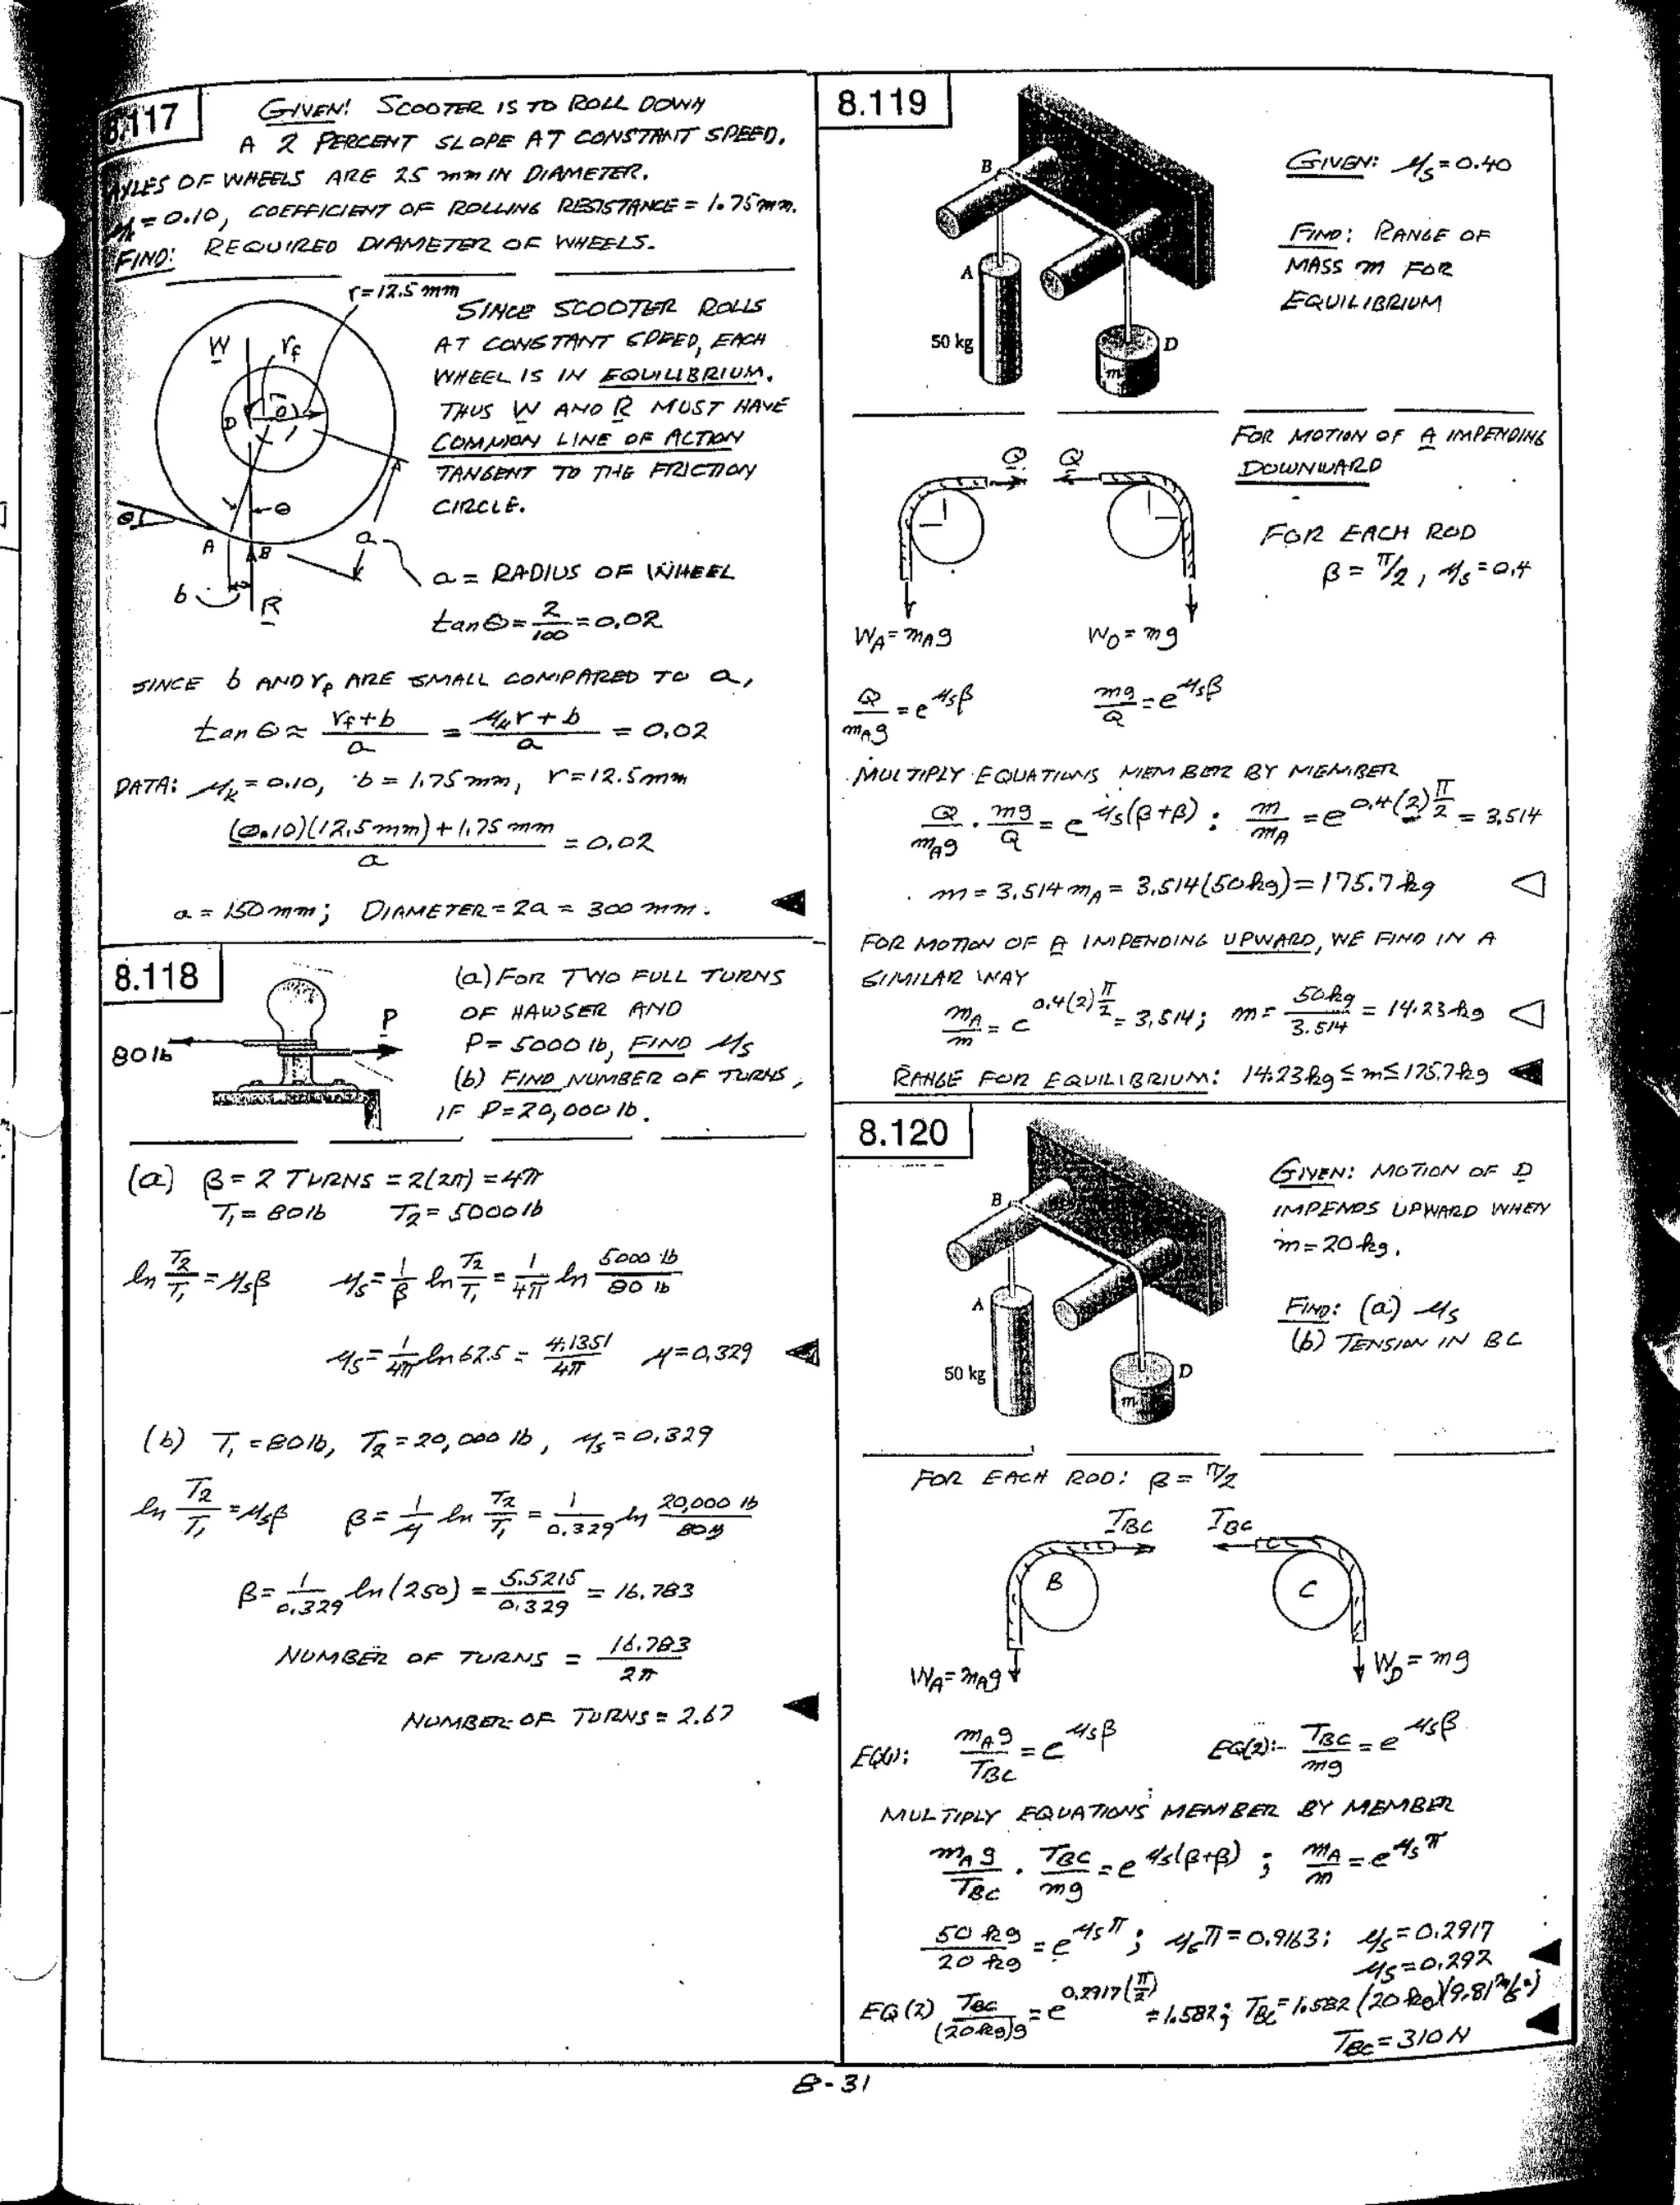 8.117
GIVEN! SCOOTER IS TO ROLL DOWN
A 2 PERCENT SLOPE AT CONSTANT SPEED.
AXLES OF WHEELS ARE 25 mm IN DIAMETER.
μk = 0.10, COEFFICIENT OF ROLLING RESISTANCE = 1.75mm.
FIND: REQUIRED DIAMETER OF WHEELS.
r=12.5 mm
W
rf
D
O
θ
θ
A
B
b
R
a
SINCE SCOOTER ROLLS
AT CONSTANT SPEED, EACH
WHEEL IS IN EQUILIBRIUM.
THUS W AND R MUST HAVE
COMMON LINE OF ACTION
TANGENT TO THE FRICTION
CIRCLE.
a = RADIUS OF WHEEL
tanθ = 2/100 = 0.02
SINCE b AND rf ARE SMALL COMPARED TO a,
tan θ ≈ (rf+b)/a = (μk r + b)/a = 0.02
DATA: μk = 0.10, b = 1.75 mm, r = 12.5mm
((0.10)(12.5mm) + 1.75 mm)/a = 0.02
a = 150mm; DIAMETER = 2a = 300 mm.
8.118
80 lb
P
(a) FOR TWO FULL TURNS
OF HAWSER AND
P = 5000 lb, FIND μs
(b) FIND NUMBER OF TURNS,
IF P=20,000 lb.
(a) β = 2 TURNS = 2(2π) = 4π
T1 = 80 lb T2 = 5000 lb
ln T2/T1 = μsβ μs = 1/β ln T2/T1 = 1/4π ln 5000 lb/80 lb
μs = 1/4π ln 62.5 = 4.1351/4π μ = 0.329
(b) T1 = 80 lb, T2 = 20,000 lb, μs = 0.329
ln T2/T1 = μsβ β = 1/μ ln T2/T1 = 1/0.329 ln 20,000 lb/80 lb
β = 1/0.329 ln(250) = 5.5215/0.329 = 16.783
NUMBER OF TURNS = 16.783/2π
NUMBER OF TURNS = 2.67
8.119
B
A
50 kg
D
m
GIVEN: μs = 0.40
FIND: RANGE OF
MASS m FOR
EQUILIBRIUM
FOR MOTION OF A IMPENDING
DOWNWARD
Q Q
FOR EACH ROD
β = π/2, μs = 0.4
WA = mAg WD = mg
Q/mAg = e^μsβ mg/Q = e^μsβ
MULTIPLY EQUATIONS MEMBER BY MEMBER
Q/mAg · mg/Q = e^μs(β+β); m/mA = e^0.4(2)π/2 = 3.514
m = 3.514 mA = 3.514(50kg) = 175.7 kg
FOR MOTION OF A IMPENDING UPWARD, WE FIND IN A
SIMILAR WAY
mA/m = e^0.4(2)π/2 = 3.514; m = 50kg/3.514 = 14.23 kg
RANGE FOR EQUILIBRIUM: 14.23kg ≤ m ≤ 175.7 kg
8.120
B
A
50 kg
D
m
GIVEN: MOTION OF D
IMPENDS UPWARD WHEN
m = 20 kg.
FIND: (a) μs
(b) TENSION IN BC
FOR EACH ROD: β = π/2
TBC TBC
B C
WA = mAg WD = mg
EQ(1): mAg/TBC = e^μsβ EQ(2):- TBC/mg = e^μsβ
MULTIPLY EQUATIONS MEMBER BY MEMBER
mAg/TBC · TBC/mg = e^μs(β+β); mA/m = e^μsπ
50 kg/20 kg = e^μsπ; μsπ = 0.9163; μs = 0.2917
μs = 0.292
EQ (2) TBC/(20kg)g = e^0.2917(π/2) = 1.582; TBC = 1.582 (20 kg)(9.81 m/s²)
TBC = 310 N
8-31